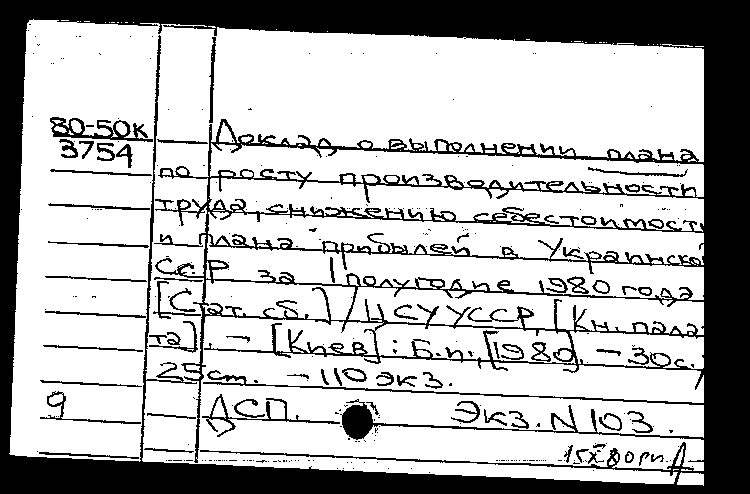 80-50к
3754
Доклад о выполнении плана
по росту производительности
труда, снижению себестоимост
и плана прибылей в Украинско
ССР за I полугодие 1980 года
[Стат. сб.] / ЦСУ УССР, [Кн. пала
та]. — [Киев]: Б.и., [1980]. — 30с.,
25 см. — 110 экз.
9 ДСП. Экз. N 103.